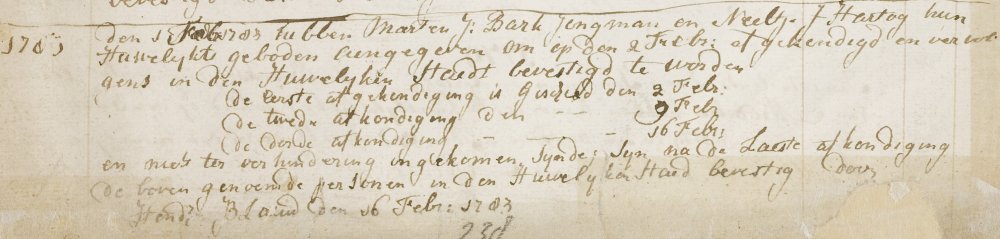 1783
den 1 Feb 1783 hebben Marten J: Bark Jongman en Neeltj. J Hartog hun
Huwelykt geboden aangegeven om op den 2 Febr: afgekendigd en vervol
gens in den Huwelyken Staadt bevestigd te worden
de eerste afgekendiging is Giscied den 2 Febr:
de twede afkondiging den - - 9 Febr
de derde afkondiging - - 16 Febr:
en niets ter verhindering ingekomen Zynde: Syn na de Laeste afkondiging
de boven genoemde personen in den Huwelyken Staed bevestig door
Hend: Blauw den 16 Febr: 1783
238